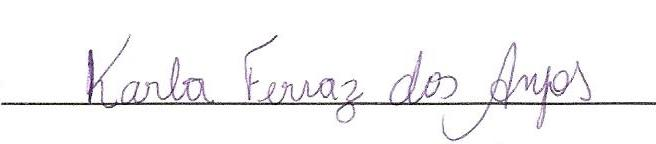 Karla Ferraz dos Anjos